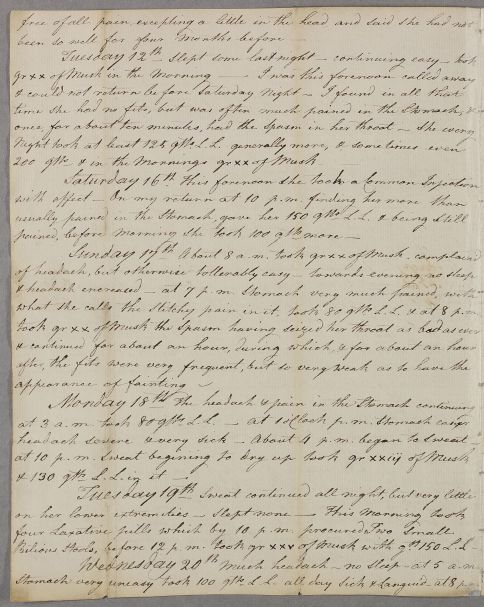 free of all pain, excepting a little in the head and said she had not
been so well for four months before —
Tuesday 12th Slept some last night — continuing easy — took
gr xx of Musk in the Morning — I was this forenoon called away
& could not return before Saturday Night — I found in all that
time she had no fits, but was often much pained in the Stomach, &
once, for about ten minutes, had the Spasm in her throat — She every
Night took at least 125 gtts L.L. generally more, & sometimes even
200 gtts & in the Mornings gr xx of Musk
Saturday 16th This forenoon she took a Common Injection
with effect — On my return at 10 p.m. finding her more than
usually pained in the Stomach, gave her 150 gtts L.L. & being still
pained, before morning she took 100 gtts more —
Sunday 17th About 8 a.m. took gr xx of Musk, complained
of headach, but otherwise tollerably easy — towards evening no sleep
& headach encreased — at 7 p.m. Stomach very much pained, with
what she calls the Stitchy pain in it, took 80 gtts L.L. & at 8 p.m.
took gr xx of Musk the Spasm having seized her throat as bad as ever
& continued for about an hour, during which, & for about an hour
after, the fits were very frequent, but so very weak as to have the
appearance of fainting
Monday 18th The headach & pain in the Stomach continuing
at 3 a.m. took 80 gtts L.L. — at 1 Clock p.m. Stomach easier
headach severe & very sick — About 4 p.m. began to Sweat
at 10 p.m. Sweat begining to dry up took gr xxiij of Musk
& 130 gtts L.L. in it —
Tuesday 19th Sweat continued all night, but very little
on her lower extremities — Slept none — This Morning took
four Laxative pills which by 10 p.m. procured Two Small
Bilious Stools, before 12 p.m. took gr xxv of Musk with gtts 150 L.L.
Wednesday 20th Much headach — no Sleep — at 5 a.m.
Stomach very uneasy took 100 gtts L.L. all day Sick & Languid at 8 p.m.